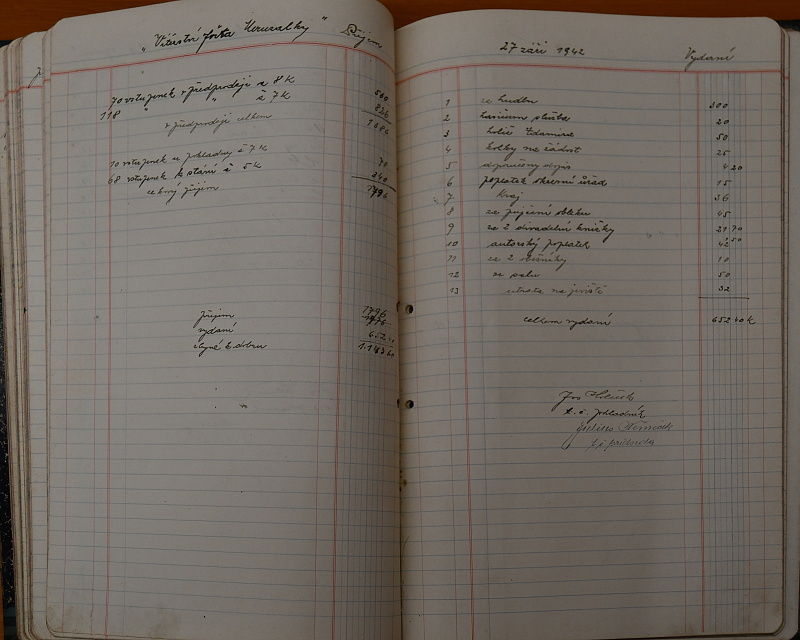 „Vítězství Jorka Houzalky" Příjem
70 vstupenek v předprodeji á 8 K 560
118 " " á 7 K 826
v předprodeji celkem 1386
10 vstupenek u pokladny á 7 K 70
68 vstupenek k stání á 5 K 340
celkový příjem 1796
příjem 1796
vydání 652.40
zbývá k dobru 1.143.60
27 září 1942 Vydání
1 za hudbu 300
2 hasičům služba 20
3 holič 50
4 kolky na žádost 25
5 doporučený dopis 4 20
6 poplatek okresní úřad 15
7 Kraj 36
8 za půjčení obleku 45
9 za 2 divadelní knížky 21 70
10 autorský poplatek 42 50
11 za 2 10
12 za salu 50
13 útrata na jeviště 32
celkem vydání 652 40 K
Jos
t. č. pokladník
Julius Němeček